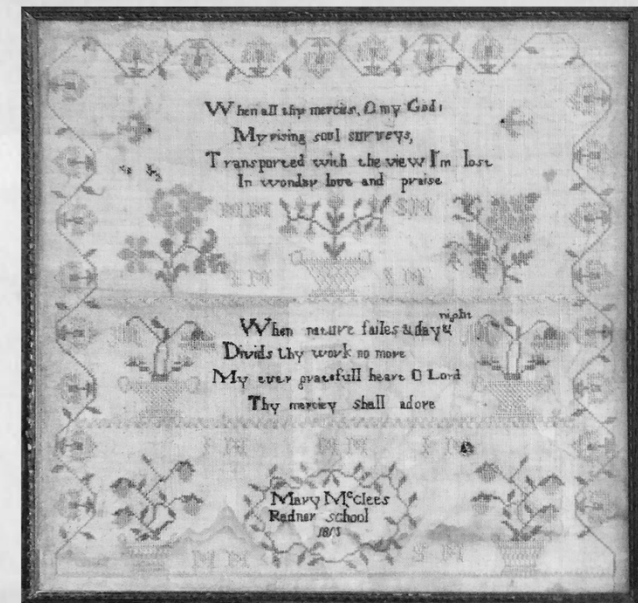 When all thy mercies, O my God:
My rising soul surveys,
Transported with the view I'm lost
In wonder love and praise
MM SM
IM
When nature failes & day & night
Divids thy work no more
My ever gratefull heart O Lord
Thy merciey shall adore
MM
Mary McClees
Radner school
MM SM